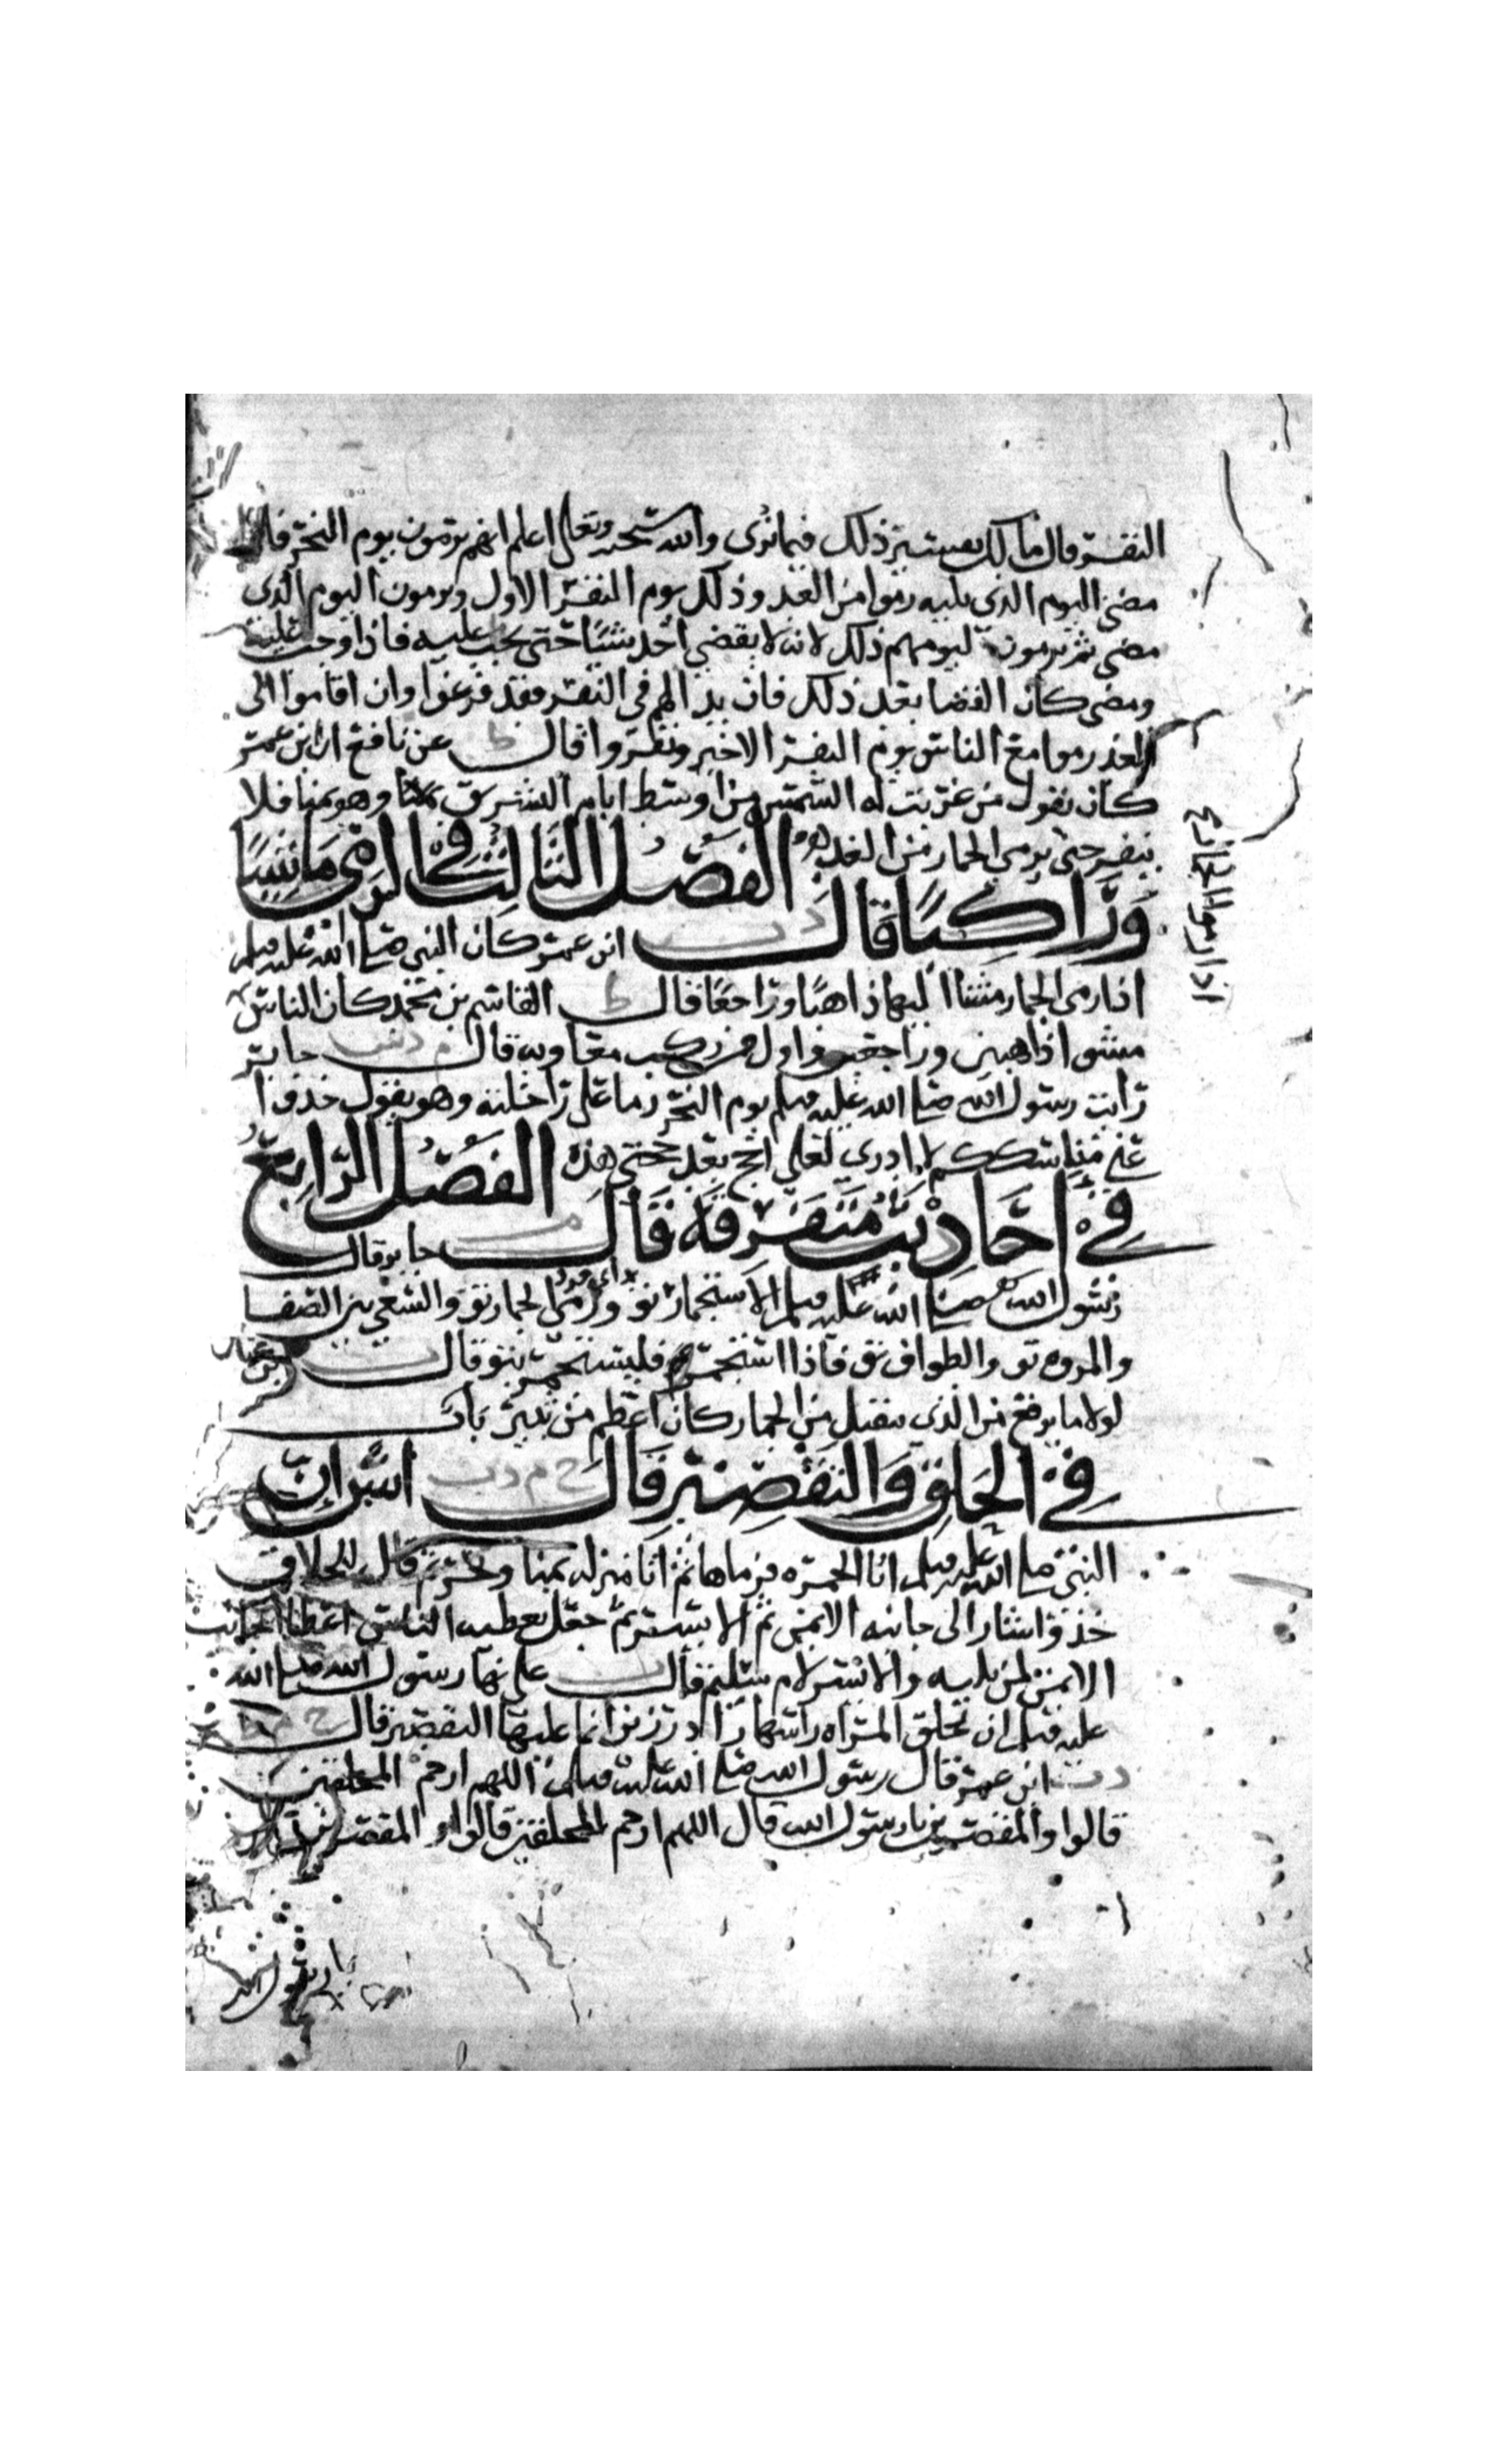 النفر قال مالك تفسير ذلك فيما نرى والله سبحنه وتعلى اعلم انهم يرمون يوم النحر فاذا
مضى اليوم الذي يليه رموا من الغد وذلك يوم النفر الاول ويرمون اليوم الذي
مضى ثم يرمون ليومهم ذلك لانه لا يقضي احد شيئا حتى يجب عليه فاذا وجب عليه
ومضى كان القضا بعد ذلك فان بدا لهم في النفر فقد فرغوا وان اقاموا الى
الغد رموا مع الناس يوم النفر الاخير ونفروا قال ط عن نافع ان ابن عمر
كان يقول من غربت له الشمس من اوسط ايام التشريق وهو بمنا فلا
ينفر حتى يرمي الجمار من الغد الفصل الثالث في الرمي ماشيا
وراكبا قال د ت ابن عمر كان النبي صلى الله عليه وسلم
اذا رمى الجمار مشا اليها ذاهبا وراجعا قال ط القاسم بن محمد كان الناس
اذا رموا الجمار مع
مشوا ذاهبين وراجعين واول من ركب معاويه قال م د س جابر
رايت رسول الله صلى الله عليه وسلم يوم النحر رما على راحلته وهو يقول خذوا
عني مناسككم لا ادري لعلي احج بعد حجتي هذه الفصل الرابع
في احاديث متفرقة قال م جابر قال
رسول الله صلى الله عليه وسلم الاستجمار تو ورمي الجمار تو والسعي بين الصفا
اي فرد
والمروه تو والطواف تو فاذا استجمر فليستجمر بتو قال ابن عباس
لولا ما يرفع من الذي يتقبل من الجمار كان اعظم من ثبير باب
في الحلق والتقصير قال خ م د ت انس ان
النبي صلى الله عليه وسلم اتا الجمره فرماها ثم اتا منزله بمنا ونحر ثم قال للحلاق
خذ واشار الى جانبه الايمن ثم الايسر ثم جعل يعطيه الناس اعطا الجانب
الايمن لمن يليه والايسر لام سليم قال ت علي نها رسول الله صلى الله
عليه وسلم ان تحلق المراه راسها زاد رزين انما عليها التقصير قال خ م ط
د ت ابن عمر قال رسول الله صلى الله عليه وسلم اللهم ارحم المحلقين
قالوا والمقصرين يا رسول الله قال اللهم ارحم المحلقين قالوا والمقصرين
يا رسول الله